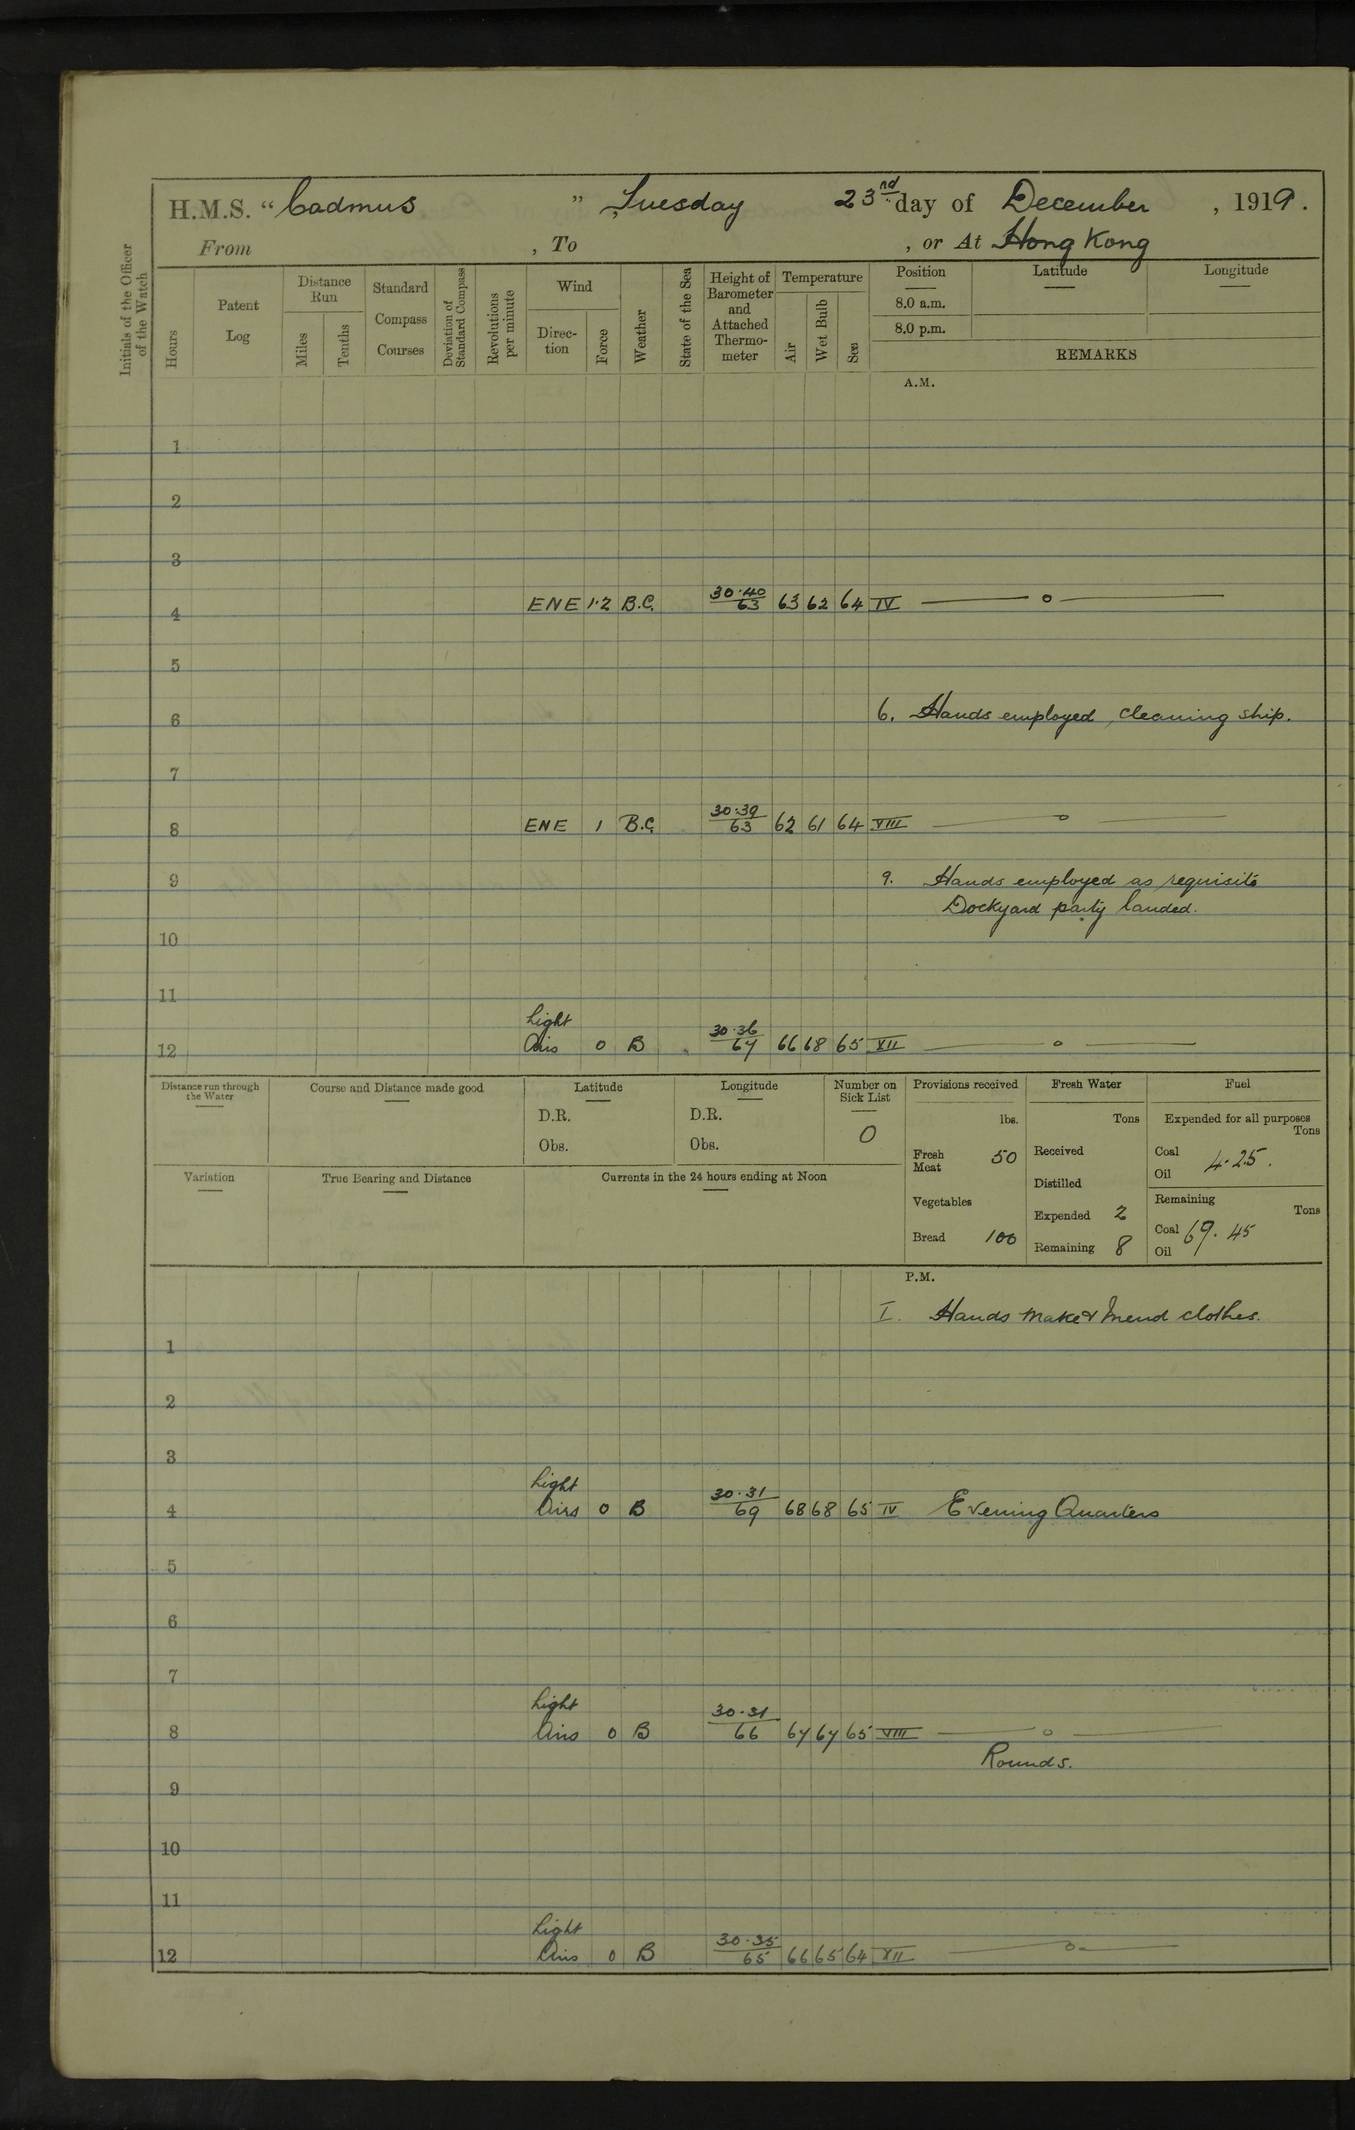 H.M.S. “Cadmus ” Tuesday 23rd day of December, 1919.
From , To , or At Hong Kong
Initials of the Officer of the Watch
Hours
Patent Log
Distance Run
Miles
Tenths
Standard Compass Courses
Deviation of Standard Compass
Revolutions per minute
Wind
Direc-tion
Force
Weather
State of the Sea
Height of Barometer and Attached Thermo-meter
Temperature
Air
Wet Bulb
Sea
Position Latitude Longitude
8.0 a.m.
8.0 p.m.
REMARKS
A.M.
1
2
3
4 ENE 1·2 B.C. 30·40/63 63 62 64 IV —— o ——
5
6 6. Hands employed cleaning ship.
7
8 ENE 1 B.C. 30·39/63 62 61 64 VIII —— o ——
9 9. Hands employed as requisite
Dockyard party landed.
10
11
Light
12 Airs 0 B 30·36/67 66 68 65 XII —— o ——
Distance run through the Water
Course and Distance made good
Latitude
D.R.
Obs.
Longitude
D.R.
Obs.
Number on Sick List
0
Provisions received
lbs.
Fresh Meat 50
Vegetables
Bread 100
Fresh Water
Tons
Received
Distilled
Expended 2
Remaining 8
Fuel
Expended for all purposes
Tons
Coal 4·25.
Oil
Remaining
Tons
Coal 69·45
Oil
Variation
True Bearing and Distance
Currents in the 24 hours ending at Noon
P.M.
I. Hands make & mend clothes.
1
2
3
Light
4 Airs 0 B 30·31/69 68 68 65 IV Evening Quarters
5
6
7
Light
8 Airs 0 B 30·31/66 67 67 65 VIII —— o ——
Rounds.
9
10
11
Light
12 Airs 0 B 30·35/65 66 65 64 XII —— o ——